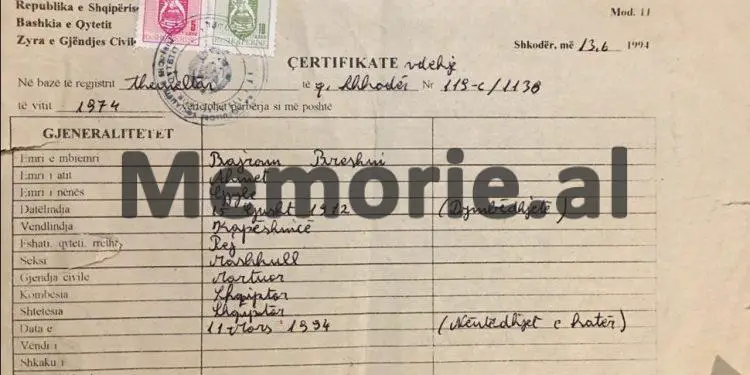 Republika e Shqipëris
Mod. 11
Bashkia e Qytetit
Zyra e Gjëndjes Civile
Shkodër, më 13.6 1994
ÇERTIFIKATE vdekje
Në bazë të regjistrit themeltar të q. Shkodër Nr 119-c/1138
të vitit 1974 vërtetohet përbërja si më poshtë
GJENERALITETET
Emri e mbiemri Bajram Breshni
Emri i atit Ahmet
Emri i nënës
Memorie.al
Datëlindja 15 Gusht 1912 (Dymbëdhjetë)
Vendlindja
Fshati, qyteti, rrethi
Seksi Mashkull
Gjendja civile Martuar
Kombësia Shqiptar
Shtetësia Shqiptar
Data e 11 Mars 1994 (Nëntëdhjet e katër)
Vendi i
Shkaku i